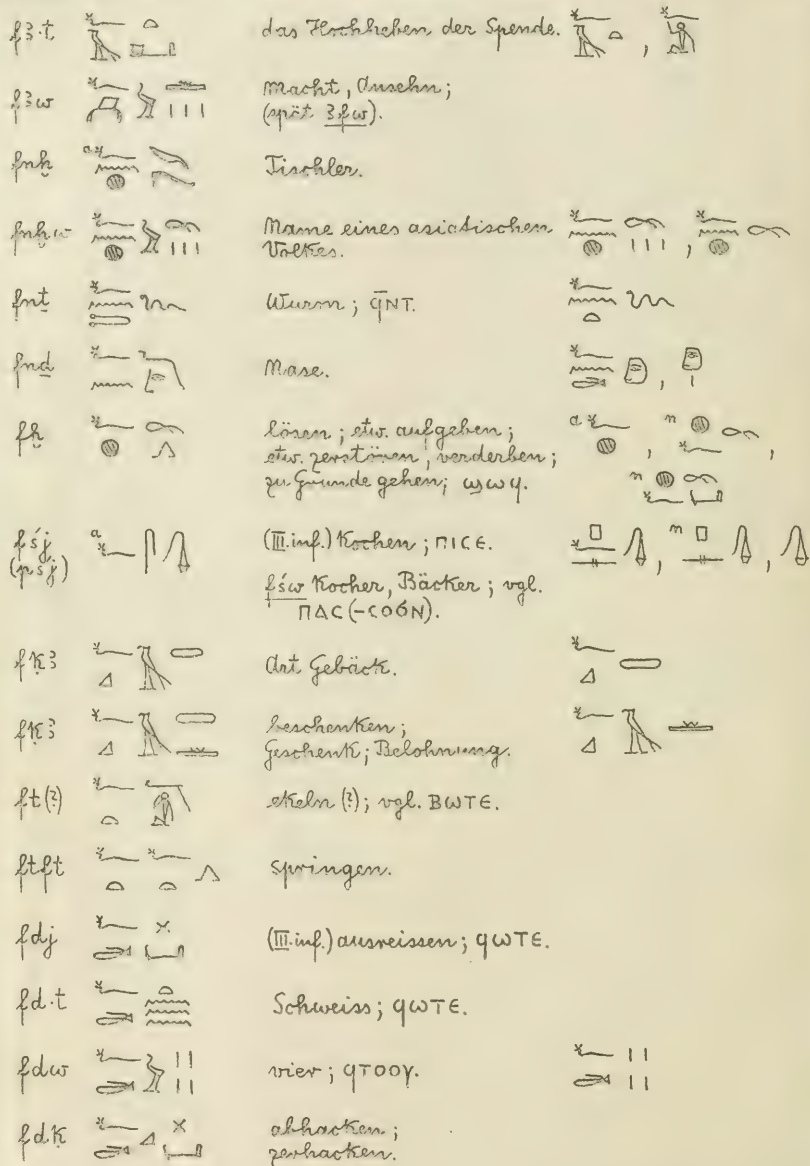 fꜣ·t das Hochheben der Spende. ,
fꜣw Macht, Ansehn;
(spät ꜣfw).
fnḫ Tischler.
fnḫw Name eines asiatischen ,
Volkes.
fnṯ Wurm; ϥⲚ̄Ⲧ.
fnḏ Nase. ,
fḫ lösen; etw. aufgeben; a , n ,
etw. zerstören, verderben;
zu Grunde gehen; ϣⲱϥ. n
fśj a (III.inf.) Kochen; ⲠⲒⲤⲈ. , n ,
(pśj)
fśw Kocher, Bäcker; vgl.
ⲠⲀⲤ(-ⲤⲞⲞ̄Ⲛ).
fḳꜣ Art Gebäck.
fḳꜣ beschenken;
Geschenk; Belohnung.
ft(?) ekeln (?); vgl. ⲂⲰⲦⲈ.
ftft springen.
fdj (III.inf.) ausreissen; ϥⲰⲦⲈ.
fd·t Schweiss; ϥⲰⲦⲈ.
fdw vier; ϥⲦⲞⲞⲨ.
fdḳ abhacken;
zerhacken.